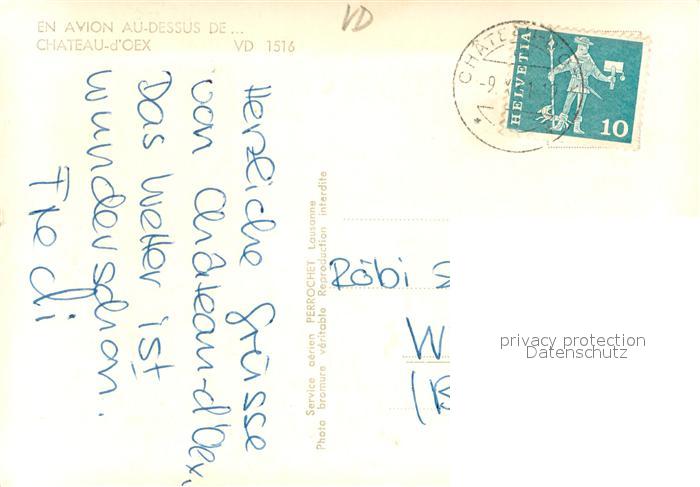 EN AVION AU-DESSUS DE...
CHATEAU-d'OEX VD 1516
VD
Herzliche Grüsse
von Château-d'Oex,
Das Wetter ist
wunderschön.
Thedi
Service aérien PERROCHET Lausanne
Photo bromure véritable Reproduction interdite
HELVETIA
10
CHÂTEAU-D'
-9.
Röbi S
W
(B
privacy protection
Datenschutz